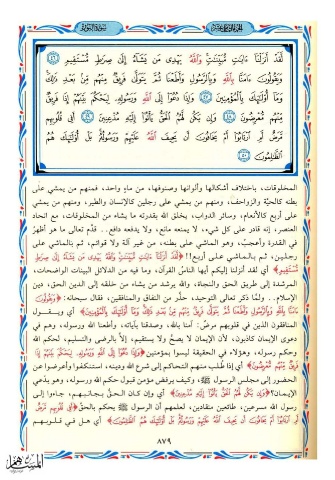 لَّقَدْ أَنزَلْنَا ءَايَٰتٍ مُّبَيِّنَٰتٍ وَٱللَّهُ يَهْدِى مَن يَشَآءُ إِلَىٰ صِرَٰطٍ مُّسْتَقِيمٍ ٤٦
وَيَقُولُونَ ءَامَنَّا بِٱللَّهِ وَبِٱلرَّسُولِ وَأَطَعْنَا ثُمَّ يَتَوَلَّىٰ فَرِيقٌ مِّنْهُم مِّنۢ بَعْدِ ذَٰلِكَ
وَمَآ أُو۟لَٰٓئِكَ بِٱلْمُؤْمِنِينَ ٤٧ وَإِذَا دُعُوٓا۟ إِلَى ٱللَّهِ وَرَسُولِهِۦ لِيَحْكُمَ بَيْنَهُمْ إِذَا فَرِيقٌ
مِّنْهُم مُّعْرِضُونَ ٤٨ وَإِن يَكُن لَّهُمُ ٱلْحَقُّ يَأْتُوٓا۟ إِلَيْهِ مُذْعِنِينَ ٤٩ أَفِى قُلُوبِهِم
مَّرَضٌ أَمِ ٱرْتَابُوٓا۟ أَمْ يَخَافُونَ أَن يَحِيفَ ٱللَّهُ عَلَيْهِمْ وَرَسُولُهُۥ بَلْ أُو۟لَٰٓئِكَ هُمُ
ٱلظَّٰلِمُونَ ٥٠
المخلوقات، باختلاف أشكالها وألوانها وصنوفها، من ماءٍ واحد، فمنهم من يمشي على
بطنه كالحيَّة والزواحف، ومنهم من يمشي على رجلين كالإنسان والطير، ومنهم من يمشي
على أربع كالأنعام، وسائر الدواب، يخلق الله بقدرته ما يشاء من المخلوقات، مع اتحاد
العنصر، إنه قادر على كل شيء، لا يمنعه مانع، ولا يدفعه دافع.. قدَّم تعالى ما هو أظهرُ
في القدرة وأعجبُ، وهو الماشي على بطنه، من غير آلة ولا قوائم، ثم بالماشي على
رجلين، ثم بالماشي على أربع!! ﴿لَّقَدْ أَنزَلْنَا ءَايَٰتٍ مُّبَيِّنَٰتٍ وَٱللَّهُ يَهْدِى مَن يَشَآءُ إِلَىٰ صِرَٰطٍ
مُّسْتَقِيمٍ﴾ أي لقد أنزلنا إليكم أيها الناسُ القرآن، وما فيه من الدلائل البينات الواضحات،
المرشدة إلى طريق الحق والنجاة، والله يرشد من يشاء من خلقه إلى الدين الحق، دين
الإسلام.. ولمَّا ذكر تعالى التوحيد، حذَّر من النفاق والمنافقين، فقال سبحانه: ﴿وَيَقُولُونَ
ءَامَنَّا بِٱللَّهِ وَبِٱلرَّسُولِ وَأَطَعْنَا ثُمَّ يَتَوَلَّىٰ فَرِيقٌ مِّنْهُم مِّنۢ بَعْدِ ذَٰلِكَ وَمَآ أُو۟لَٰٓئِكَ بِٱلْمُؤْمِنِينَ﴾ أي ويقول
المنافقون الذين في قلوبهم مرضٌ: آمنا بالله، وصدقنا بآياته، وأطعنا الله ورسوله، وهم في
دعوى الإيمان كاذبون، لأن الإيمان لا يصحُّ ولا يستقيم، إلَّا بالرضى والتسليم، لحكم الله
وحكم رسوله، وهؤلاء في الحقيقة ليسوا بمؤمنين ﴿وَإِذَا دُعُوٓا۟ إِلَى ٱللَّهِ وَرَسُولِهِۦ لِيَحْكُمَ بَيْنَهُمْ إِذَا
فَرِيقٌ مِّنْهُم مُّعْرِضُونَ﴾ أي إذا طُلب منهم التحاكم إلى شرع الله ودينه، استنكفوا وأعرضوا عن
الحضور إلى مجلس الرسول ﷺ، وكيف يرفض مؤمن قبول حكم الله ورسوله، وهو يدَّعي
الإيمان؟ ﴿وَإِن يَكُن لَّهُمُ ٱلْحَقُّ يَأْتُوٓا۟ إِلَيْهِ مُذْعِنِينَ﴾ أي وإن كان الحقُّ بجانبهم، جاءوا إلى
رسول الله مسرعين، طائعين منقادين، لعلمهم أن الرسول ﷺ يحكم بالحقِّ ﴿أَفِى قُلُوبِهِم مَّرَضٌ
أَمِ ٱرْتَابُوٓا۟ أَمْ يَخَافُونَ أَن يَحِيفَ ٱللَّهُ عَلَيْهِمْ وَرَسُولُهُۥ بَلْ أُو۟لَٰٓئِكَ هُمُ ٱلظَّٰلِمُونَ﴾ أي هل في قلوبهم
٨٧٩